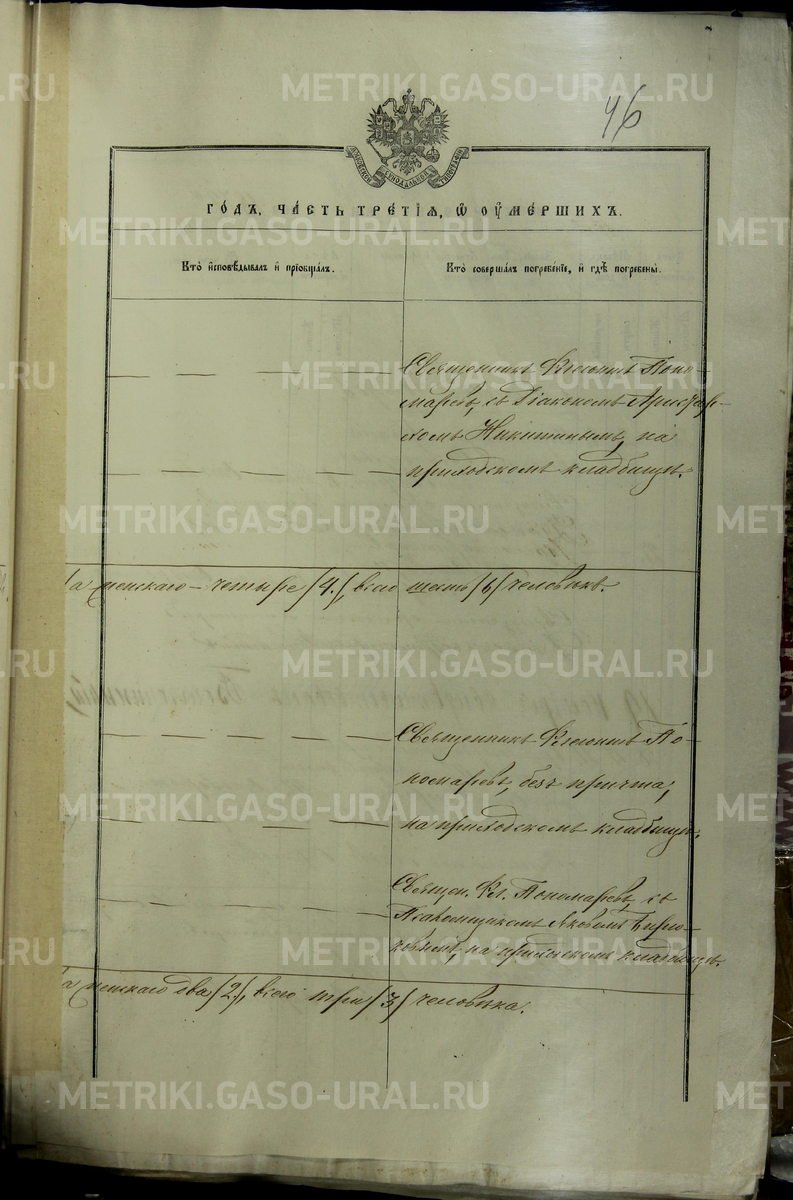 METRIKI.GASO-URAL.RU
46
ГО́ДЪ, ЧА́СТЬ ТРЕ́ТІѦ, Ѡ҆ ОУ҆МЕ́РШИХЪ.
Кто̀ и҆сповѣ́дывалъ и҆ пріѡбща́лъ.
Кто̀ соверша́лъ погребе́ніе, и҆ гдѣ̀ погребены̀.
Священникъ Климентъ Поно-
маревъ, съ Діакономъ Аристар-
хомъ Никитинымъ, на
приходскомъ кладбищѣ.
а женскаго – четыре /4./, всего шесть /6/ человѣкъ.
Священникъ Климентъ По-
номаревъ, безъ причта,
на приходскомъ кладбищѣ.
Священ. Кл. Пономаревъ, съ
Псаломщикомъ Яковомъ Бирю-
ковымъ, на приходскомъ кладбищѣ.
а женскаго два /2/, всего три /3/ человѣка.